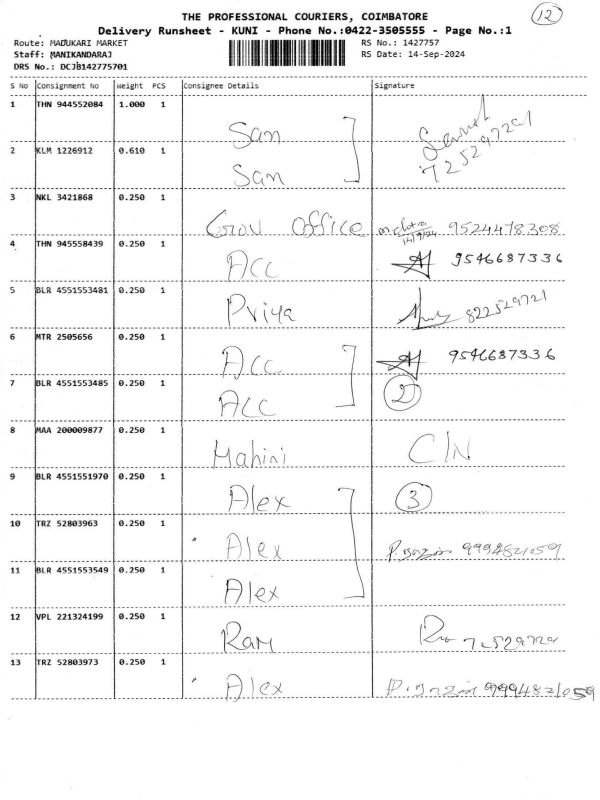 THE PROFESSIONAL COURIERS, COIMBATORE
12
Delivery Runsheet - KUNI - Phone No.:0422-3505555 - Page No.:1
Route: MADUKARI MARKET RS No.: 1427757
Staff: MANIKANDARAJ RS Date: 14-Sep-2024
DRS No.: DCJB142775701
S No Consignment No Weight PCS Consignee Details Signature
1 THN 944552084 1.000 1 San
2 KLM 1226912 0.610 1 San
3 NKL 3421868 0.250 1 Gov Office 14/9/24 9524478308
4 THN 945558439 0.250 1 Acc 9546687336
5 BLR 4551553481 0.250 1 Priya 822529721
6 MTR 2505656 0.250 1 Acc 9546687336
7 BLR 4551553485 0.250 1 Acc 2
8 MAA 200009877 0.250 1 Mahini C/N
9 BLR 4551551970 0.250 1 Alex 3
10 TRZ 52803963 0.250 1 Alex
11 BLR 4551553549 0.250 1 Alex
12 VPL 221324199 0.250 1 Ram
13 TRZ 52803973 0.250 1 Alex